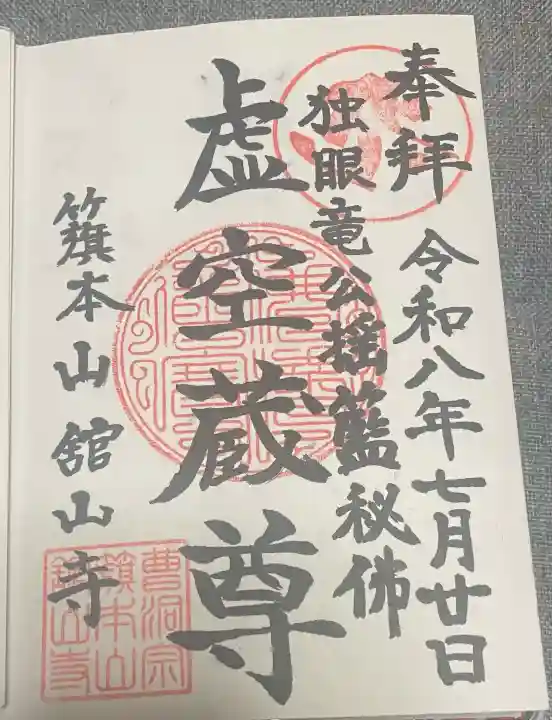 奉拝 令和八年七月廿日
独眼竜公揺籃秘佛
虚空蔵尊
籏本山舘山寺
曹洞宗
籏本山
舘山寺